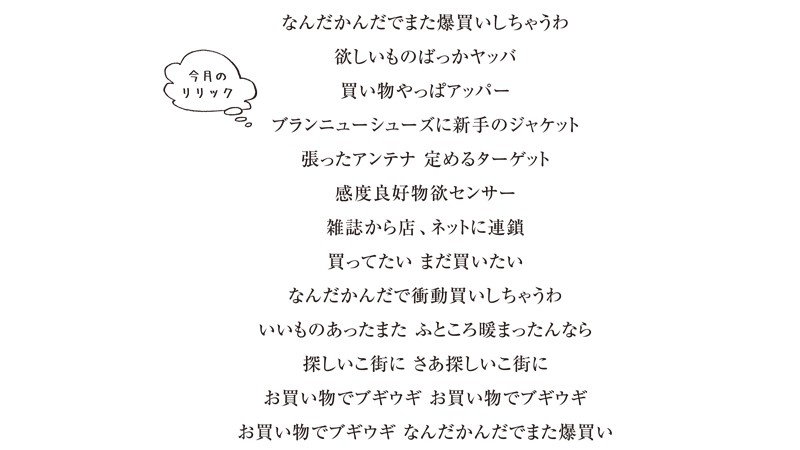 なんだかんだでまた爆買いしちゃうわ
欲しいものばっかヤッバ
今月の
リリック
買い物やっぱアッパー
ブランニューシューズに新手のジャケット
張ったアンテナ 定めるターゲット
感度良好物欲センサー
雑誌から店、ネットに連鎖
買ってたい まだ買いたい
なんだかんだで衝動買いしちゃうわ
いいものあったまた ふところ暖まったんなら
探しいこ街に さあ探しいこ街に
お買い物でブギウギ お買い物でブギウギ
お買い物でブギウギ なんだかんだでまた爆買い